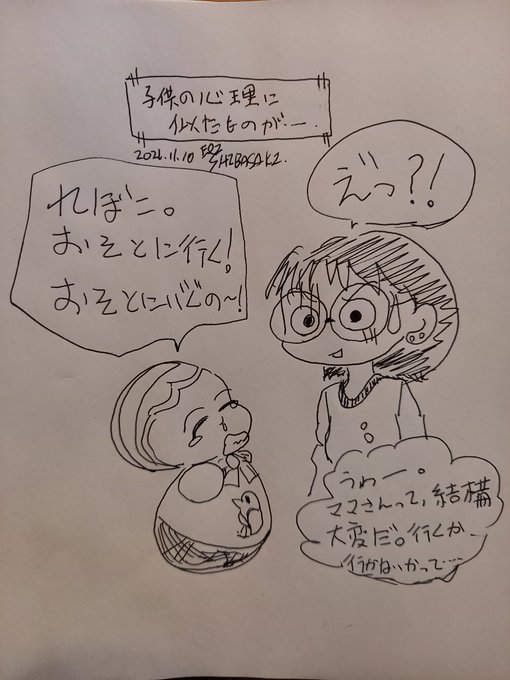 子供の心理に
似たものが….
2021.11.10 ERI
SHIBASAKI.
え゛っ?!
れぼこ。
おそとに行く!
おそとにい゛ぐの〜!
うわー。
ママさんって、結構
大変だ。行くか、
行かないかって…